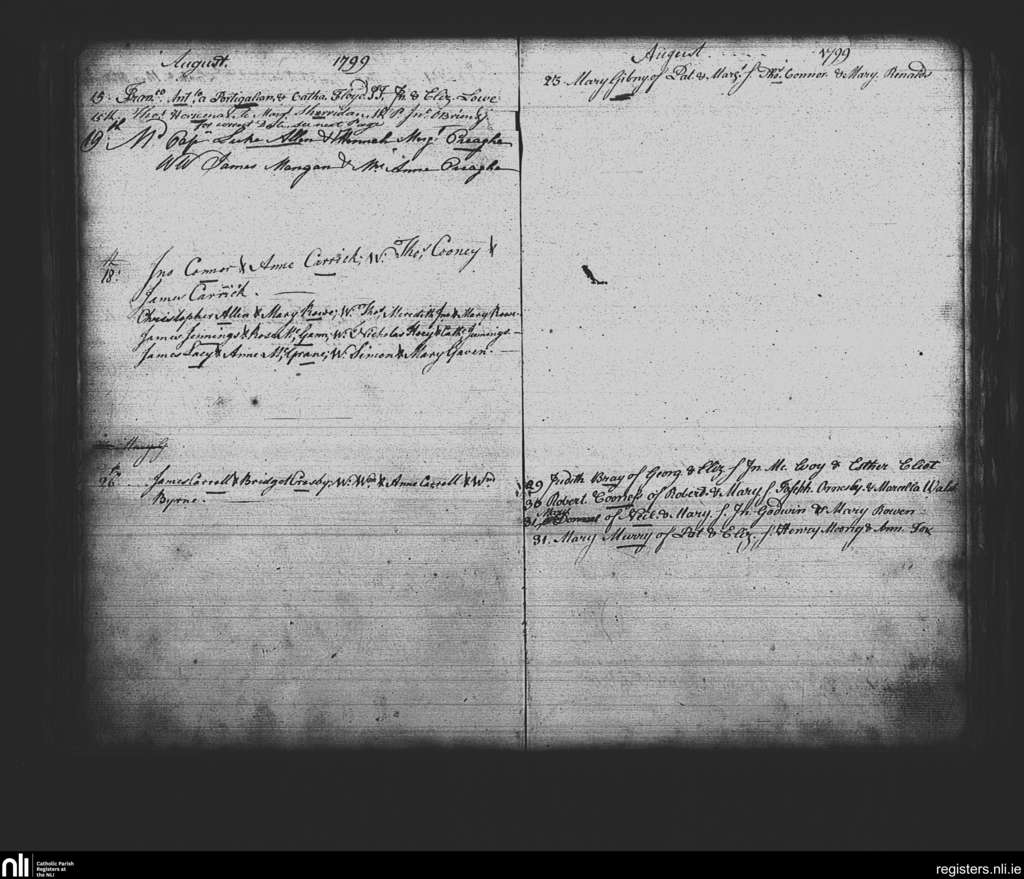 August 1799
15 Franco. Antto. a Portigalian, & Catha. Floyd TT. Jn. & Eliz. Lowe
15th Thos. Horseman to Margt. Sherridan
For correct Date see next Page
19th Md. Capn. Luke Allen & Hannah Mary Creaghe
WW James Mangan & Mrs. Anne Creaghe
18: Jno Connor & Anne Carrick; W. Thos. Cooney &
James Carrick.
Christopher Allen & Mary Rowe; W. Thos. Meredith Jno & Mary Rowe.
James Jennings & Rose Mc. Gann; W. Nicholas Hoey & Cath. Jennings
James Lacy & Anne Mc. Grane; W. Simon & Mary Gaven.
26 James Carroll & Bridget Crosby; W. Wm. & Anne Carroll & Wm
Byrne.
August 1799
23 Mary Gibny of Pat. & Margt. S Thos. Connor & Mary Renolds
29 Judith Bray of Georg & Eliz S Jn. Mc. Evoy & Esther Eliot
30 Robert of Robert & Mary S Joseph. Ormsby & Marcella Walsh
31 Mary of Neil & Mary. S Jn. Godwin & Mary Bowen
31. Mary Murry of Pat & Eliz. S. Henry & Ann. Fox
nli
Catholic Parish
Registers at
the NLI
registers.nli.ie